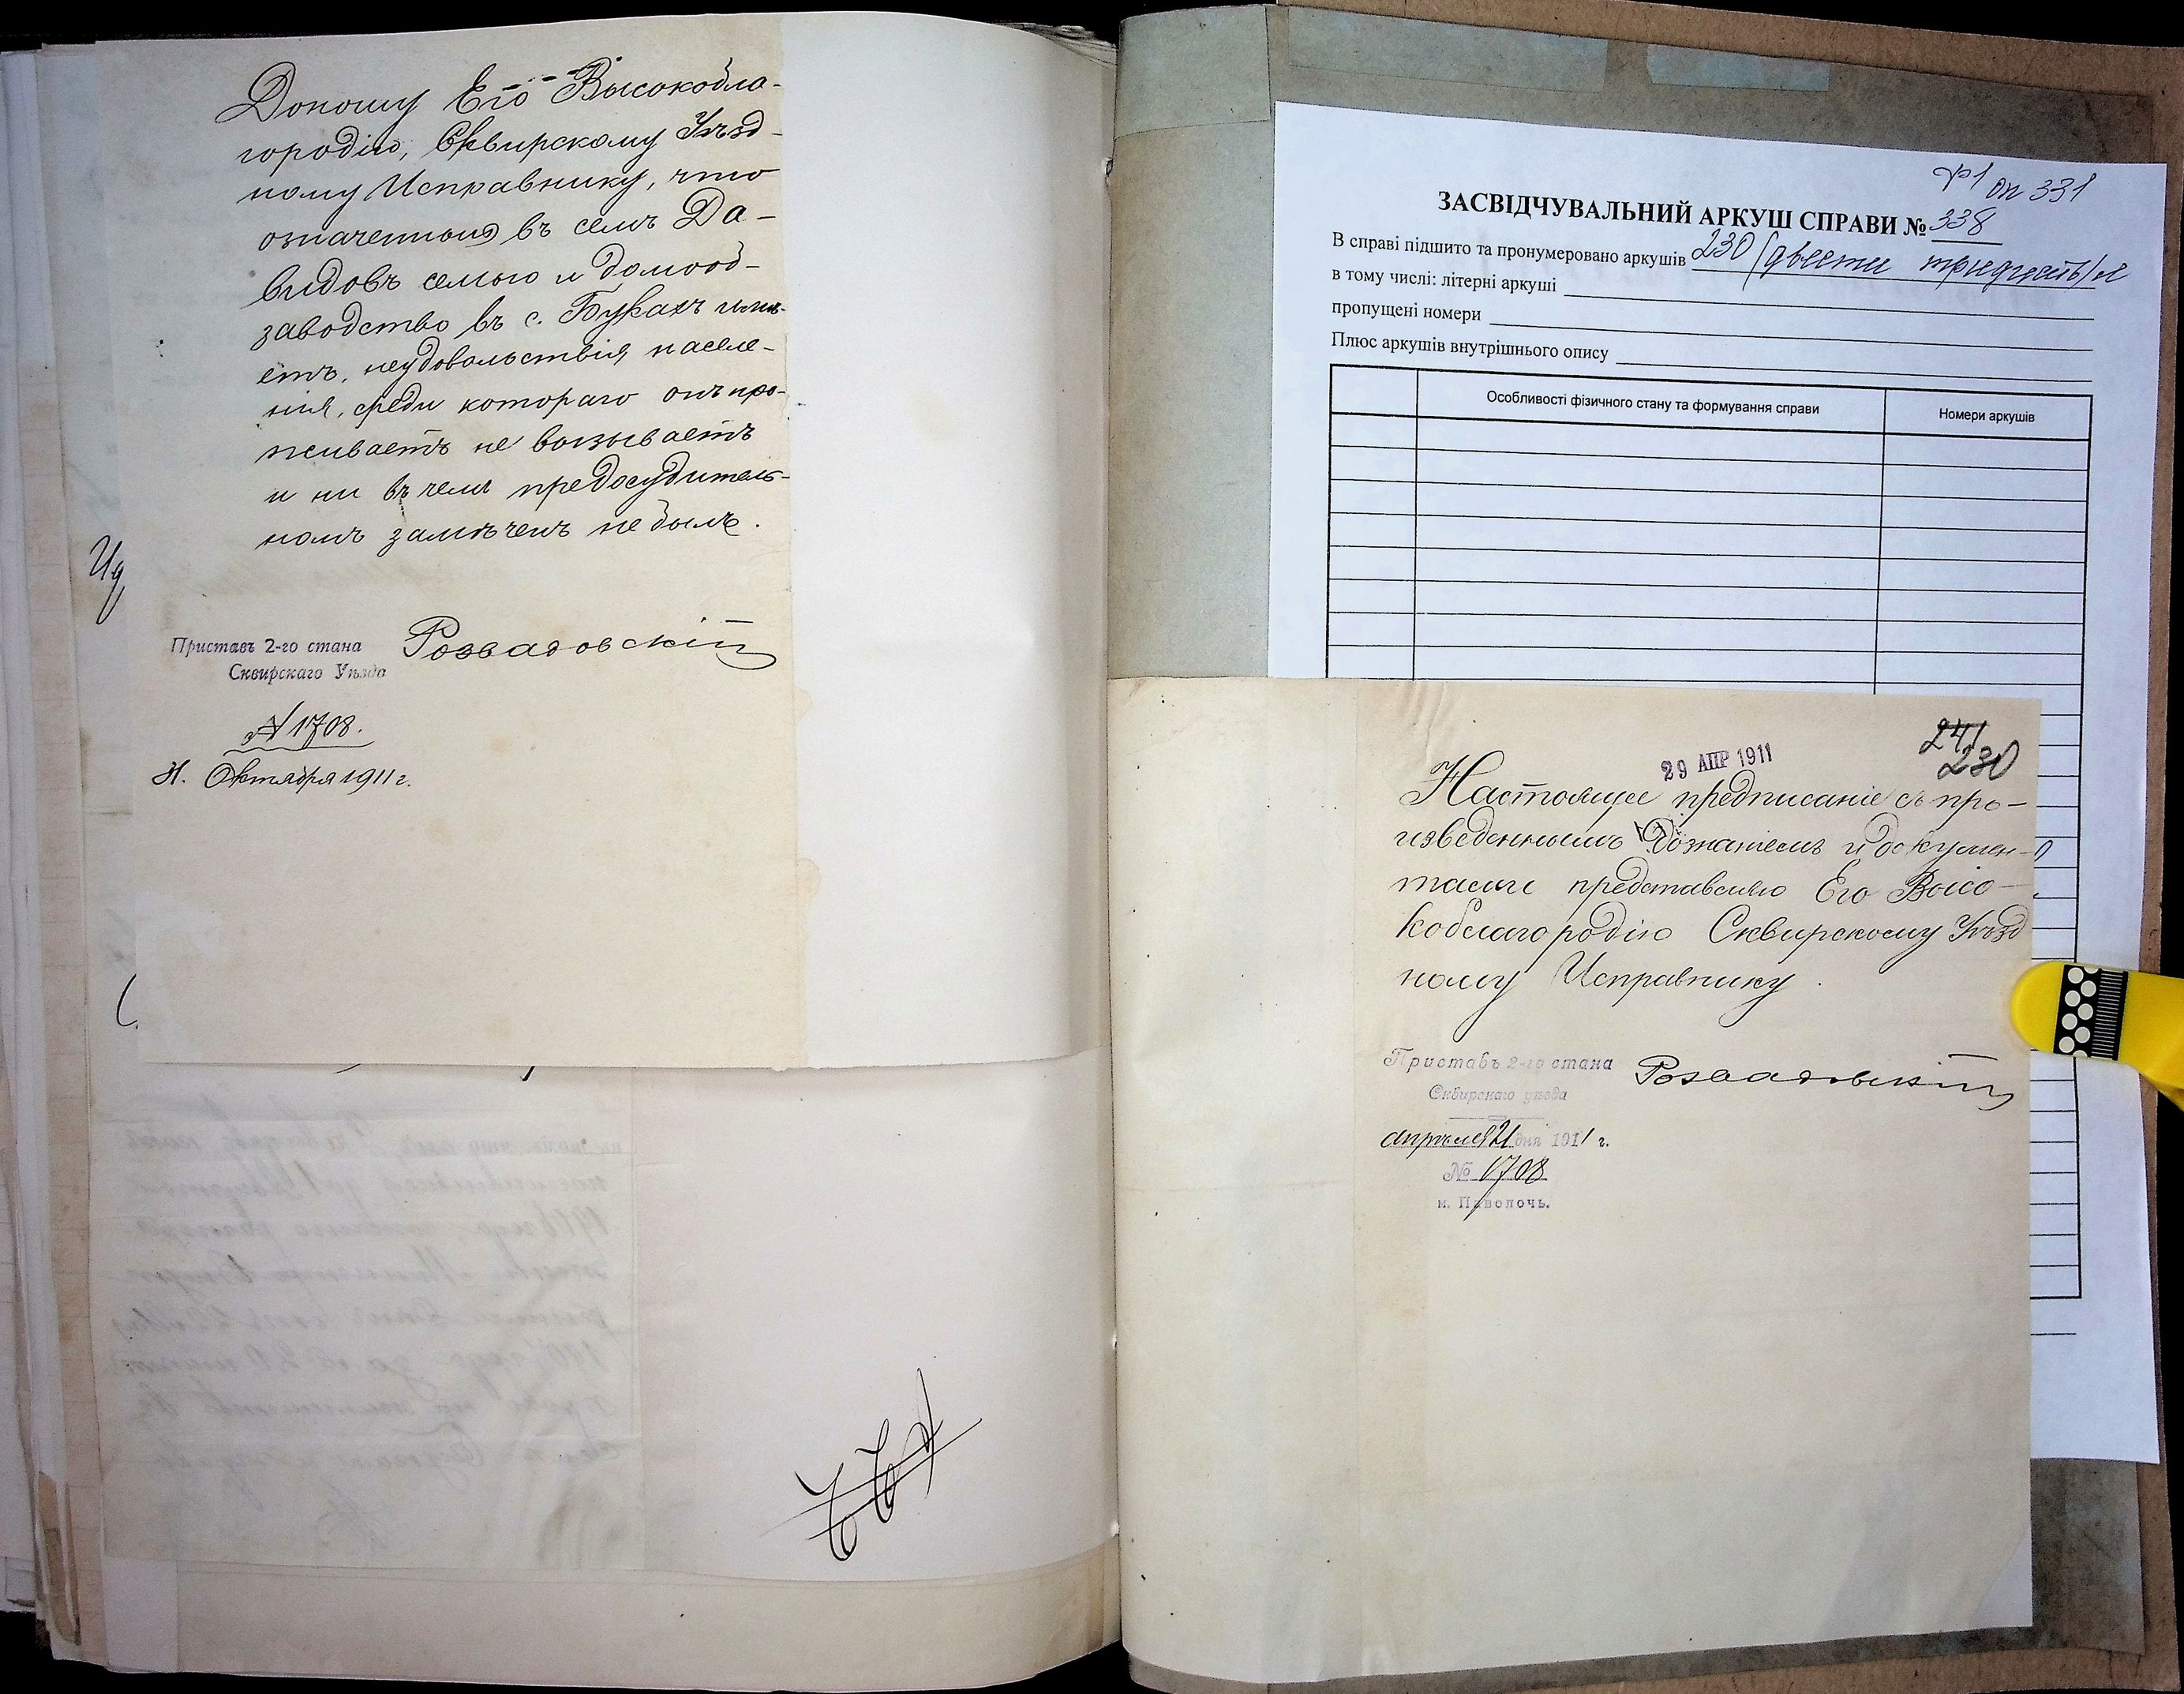 Доношу Его Высокобла-
городію, Сквирскому Уѣзд-
ному Исправнику, что
означенный въ семъ Да-
видовъ семью и домооб-
заводство въ с. Букахъ имѣ-
етъ, неудовольствія населе-
нія, среди котораго онъ про-
живаетъ не вызываетъ
и ни въ чемъ предосудитель-
номъ замѣченъ не былъ.
Приставъ 2-го стана
Сквирскаго Уѣзда
Розвадовскій
№ 1708.
21. Октября 1911 г.
р1 оп 331
ЗАСВІДЧУВАЛЬНИЙ АРКУШ СПРАВИ № 338
В справі підшито та пронумеровано аркушів 230 (двести тридцать) л
в тому числі: літерні аркуші
пропущені номери
Плюс аркушів внутрішнього опису
Особливості фізичного стану та формування справи
Номери аркушів
241
230
29 АПР 1911
Настоящее предписаніе съ про-
изведеннымъ дознаніемъ и докумен-
тами представляю Его Высо-
кобlагородію Сквирскому Уѣзд
ному Исправнику.
Приставъ 2-го стана
Сквирскаго уѣзда
Розвадовскій
апрѣля 21 дня 1911 г.
№ 1708
м. Паволочь.